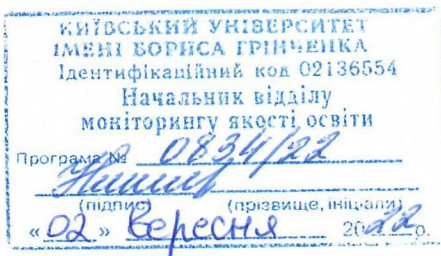 КИЇВСЬКИЙ УНІВЕРСИТЕТ
ІМЕНІ БОРИСА ГРІНЧЕНКА
Ідентифікаційний код 02136554
Начальник відділу
моніторингу якості освіти
Програма № 0834/22
(підпис) (прізвище, ініціали)
«02» вересня 2022р.